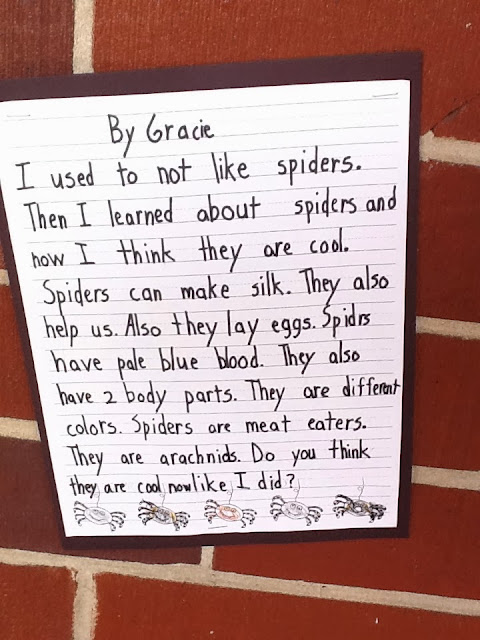 By Gracie
I used to not like spiders.
Then I learned about spiders and
now I think they are cool.
Spiders can make silk. They also
help us. Also they lay eggs. Spidrs
have pale blue blood. They also
have 2 body parts. They are different
colors. Spiders are meat eaters.
They are arachnids. Do you think
they are cool now like I did?